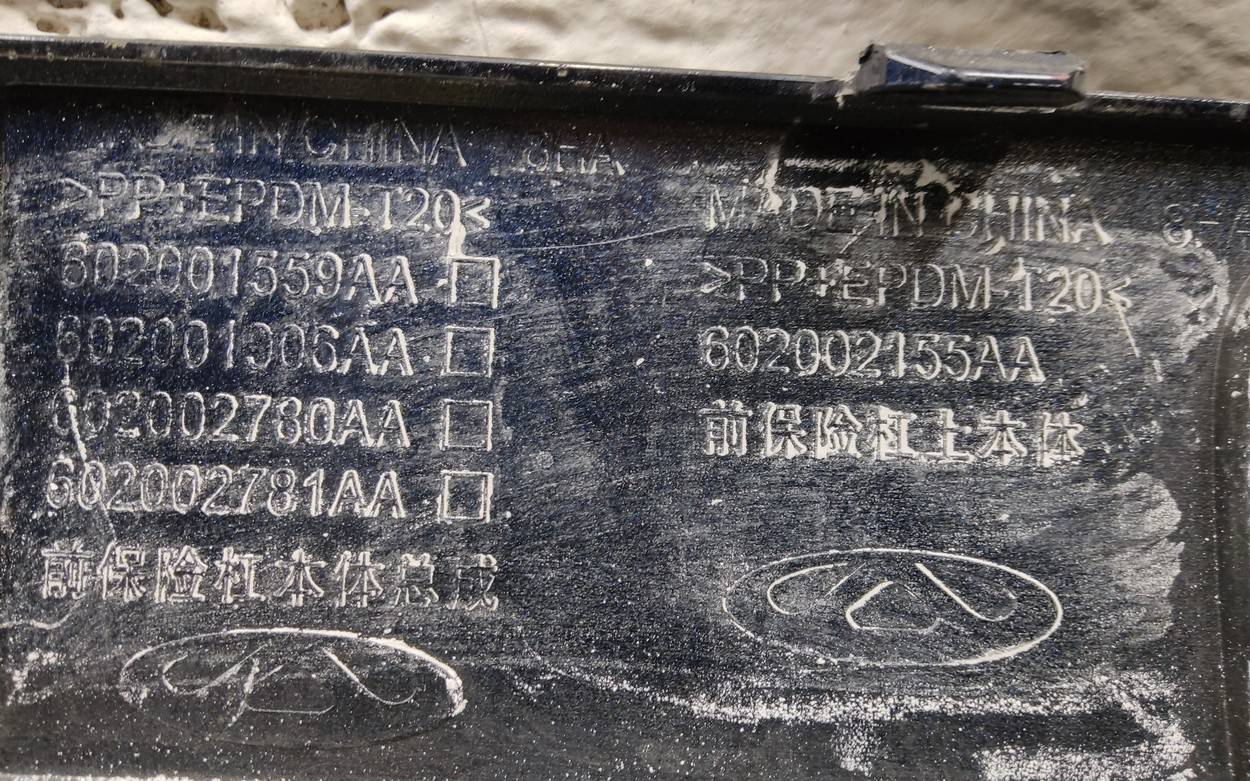 MADE IN CHINA
>PP+EPDM-T20<
602001559AA
602001306AA
602002780AA
602002781AA
前保险杠本体总成
MADE IN CHINA
>PP+EPDM-T20<
602002155AA
前保险杠上本体